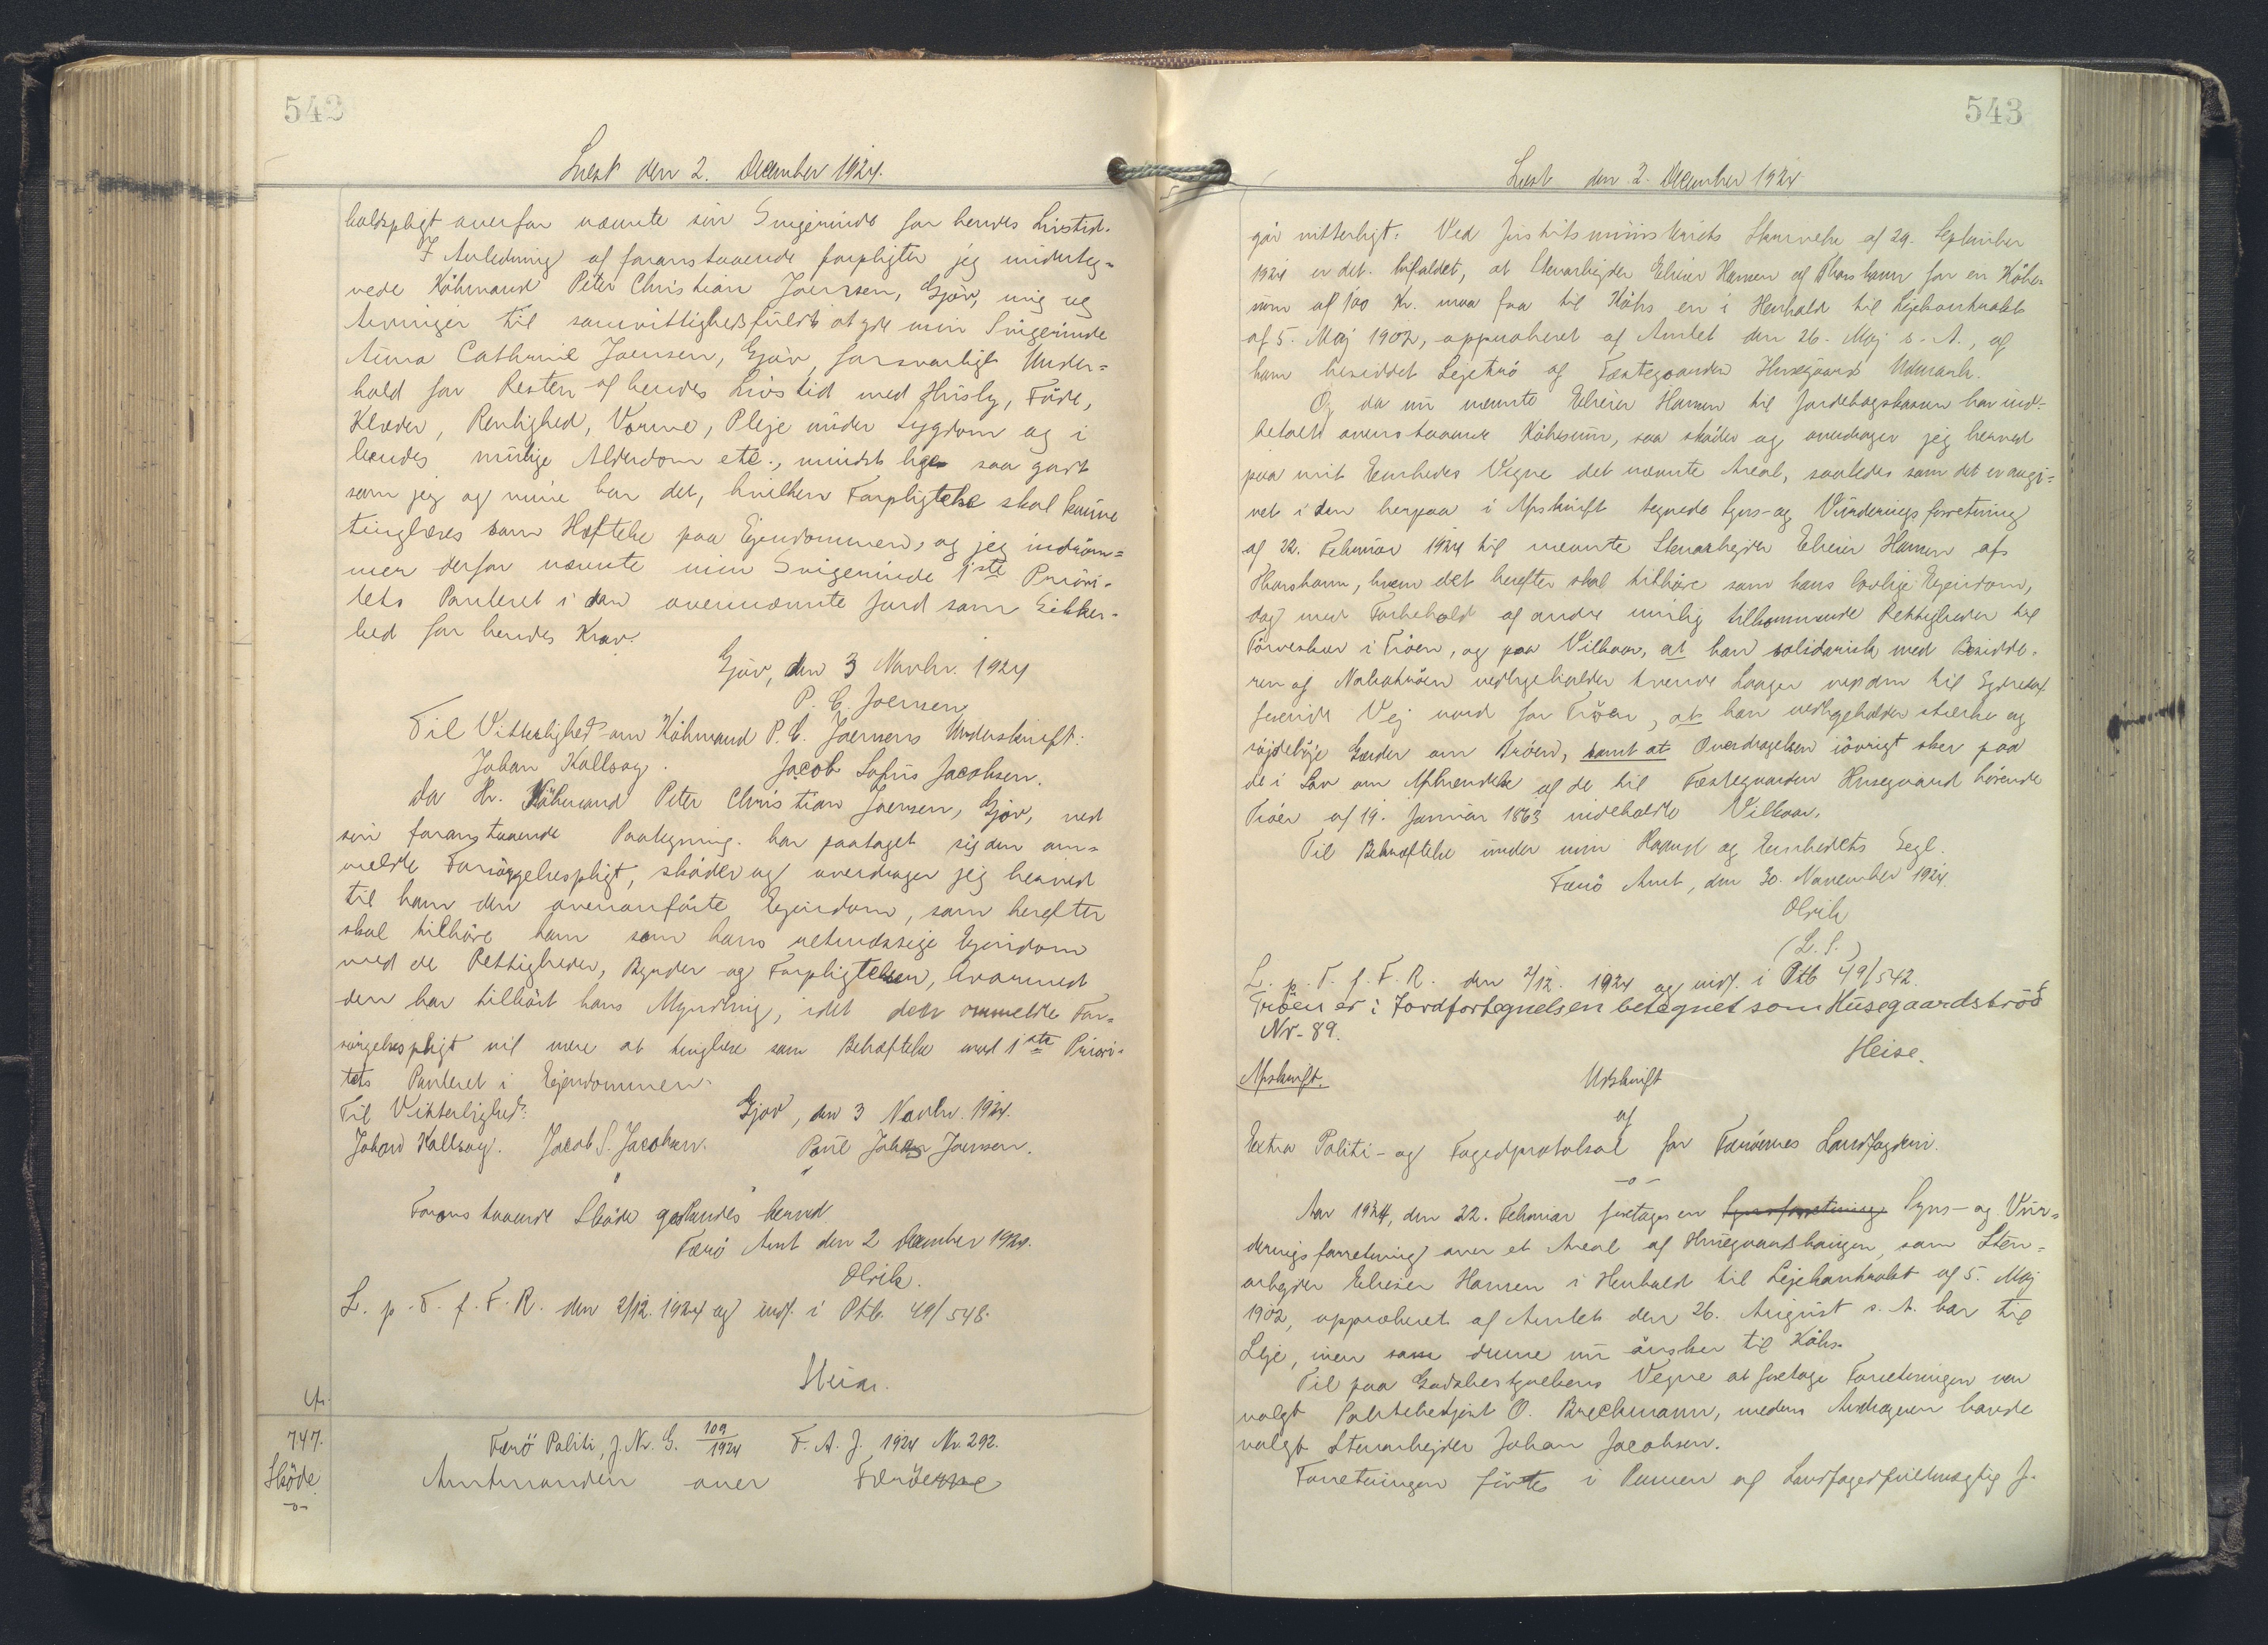 542
Læst den 2. December 1924.
holdspligt overfor nævnte sin Svigerinde for hendes Livstid.
I Anledning af foranstaaende forpligter jeg underteg=
nede Købmand Peter Christian Joensen, Gjov, mig og
Arvinger til samvittighedsfuldt at yde min Svigerinde
Anna Cathrine Joensen, Gjov, forsvarligt Under=
hold for Resten af hendes Livstid med Husly, Føde,
Klæder, Renlighed, Varme, Pleje under Sygdom og i
hendes mulige Alderdom etc., mindst lige saa godt
som jeg og mine har det, hvilken Forpligtelse skal kunne
tinglæses som Hæftelse paa Ejendommen, og jeg indrøm=
mer derfor nævnte min Svigerinde 1ste Priori-
tets Panteret i den ovennævnte Jord som Sikker-
hed for hendes Krav.
Gjov, den 3 Novbr. 1924
P. C. Joensen
Til Vitterlighed om Købmand P. C. Joensens Underskrift:
Johan Kallsoy. Jacob Lofus Jacobsen.
Da Hr. Købmand Peter Christian Joensen, Gjov, ved
sin foranstaaende Paategning har paataget sig den om=
meldte Forsørgelsespligt, skøder og overdrager jeg herved
til ham den ovenanførte Ejendom, som herefter
skal tilhøre ham som hans retmæssige Ejendom
med de Rettigheder, Byrder og Forpligtelsen, hvormed
den har tilhørt hans Myndling, idet den ommeldte For=
sørgelsespligt vil være at tinglæse som Behæftelse med 1ste Priori-
tets Panteret i Ejendommen.
Til Vitterlighed: Gjov, den 3 Novbr. 1924.
Johan Kallsoy. Jacob S. Jacobsen. Poul Johan Joensen.
Foranstaaende Skøde godkendes herved
Færø Amt den 2 December 1924.
Olrik.
L. p. T. f. F. R. den 2/12. 1924 og indf. i Ptb. 49/548.
Heise.
747. Færö Politi, J. Nr. G. 109/1924 F. A. J. 1924 Nr. 292.
Skøde Amtmanden over Færöerne
-o-
543
Læst den 2. December 1924
gør vitterligt: Ved Justitsministeriets Skrivelse af 29. September
1924 er det bifaldet, at Stenarbejder Elieser Hansen af Thorshavn for en Købe-
sum af 100 Kr. maa faa til Købs en i Henhold til Lejekontrakt
af 5. Maj 1902, approberet af Amtet den 26. Maj s. A., af
ham besiddet Lejetrö af Fæstegaarden Husegaards Udmark.
Og da nu nævnte Elieser Hansen til Jordebogskassen har ind=
betalt ovenstaaende Købesum, saa skøder og overdrager jeg herved
paa mit Embedes Vegne det nævnte Areal, saaledes som det er angi=
vet i den herpaa i Afskrift tegnede Syns- og Vurderingsforretning
af 22. Februar 1924 til nævnte Stenarbejder Elieser Hansen af
Thorshavn, hvem det herefter skal tilhøre som hans lovlige Ejendom,
dog med Forbehold af andre mulig tilkommende Rettigheder til
Tørveskær i Trøen, og paa Vilkaar, at han solidarisk med Besidde-
ren af Nabotrøen vedligeholder tvende Laager ved den til
førende Vej nord for Trøen, at han vedligeholder stærke og
Gærder om Trøen, samt at Overdragelsen iøvrigt sker paa
de i Lov om Afhændelse af de til Fæstegaarden Husegaard hørende
Trøer af 19. Januar 1863 indeholdte Vilkaar.
Til Bekræftelse under min Haand og Embedets Segl.
Færø Amt, den 30. November 1924.
Olrik
(L. S.)
L. p. T. f. F. R. den 2/12. 1924 og indf. i Ptb 49/542.
Trøen er i Jordfortegnelsen betegnet som Husegaardstrøö
Nr. 89.
Heise.
Afskrift. Udskrift
af
Extra Politi- og Fogedprotokol for Færöernes Landfogderi.
-o-
Aar 1924, den 22. Februar foretages en Synsforretning Syns- og Vur=
deringsforretning over et Areal af Husegaardshaugen, som Sten=
arbejder Elieser Hansen i Henhold til Lejekontrakt af 5. Maj
1902, approberet af Amtet den 26. August s. A. har til
Leje, men som denne nu ønsker til Købs.
Til paa Godsbestyrelsens Vegne at foretage Forretningen var
valgt Politibetjent O. Breckmann, medens Andrageren havde
valgt Stenarbejder Johan Jacobsen.
Forretningen førtes i Pennen af Landfogedfuldmægtig J.